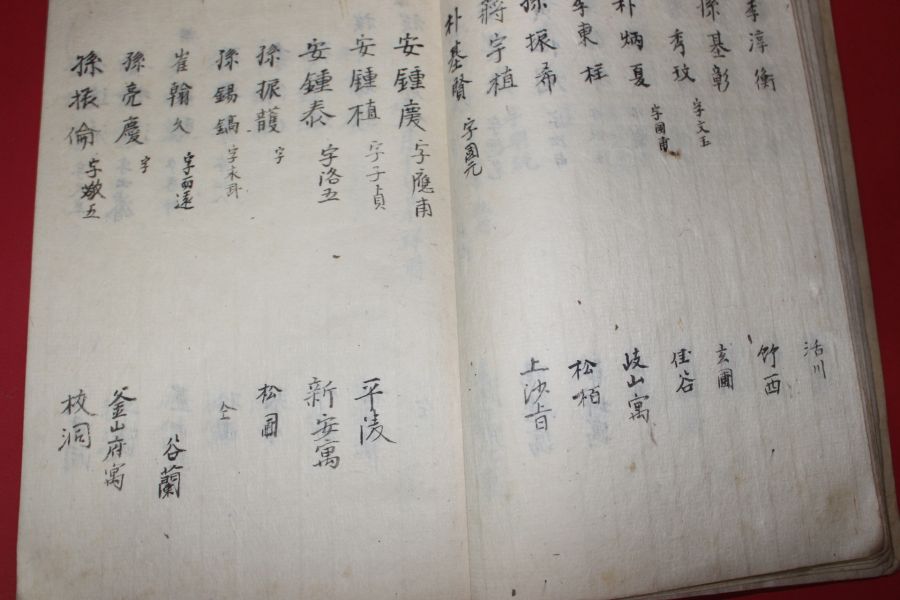 李淳衡 活川
孫基彰 字文玉 竹西
秀玟 玄圃
朴炳夏 字國甫 佳谷
李東柱 岐山寓
孫振希 松栢
蔣宇植 上沙旨
朴基賢 字國元
安鍾慶 字應甫
安鍾植 字子貞 平陵
安鍾泰 字洛五 新安寓
孫振頀 字 松圃
孫錫鎬 字木耳 仝
崔翰久 字雨遠 谷蘭
孫亮慶 字 釜山府寓
孫振倫 字敬五 校洞